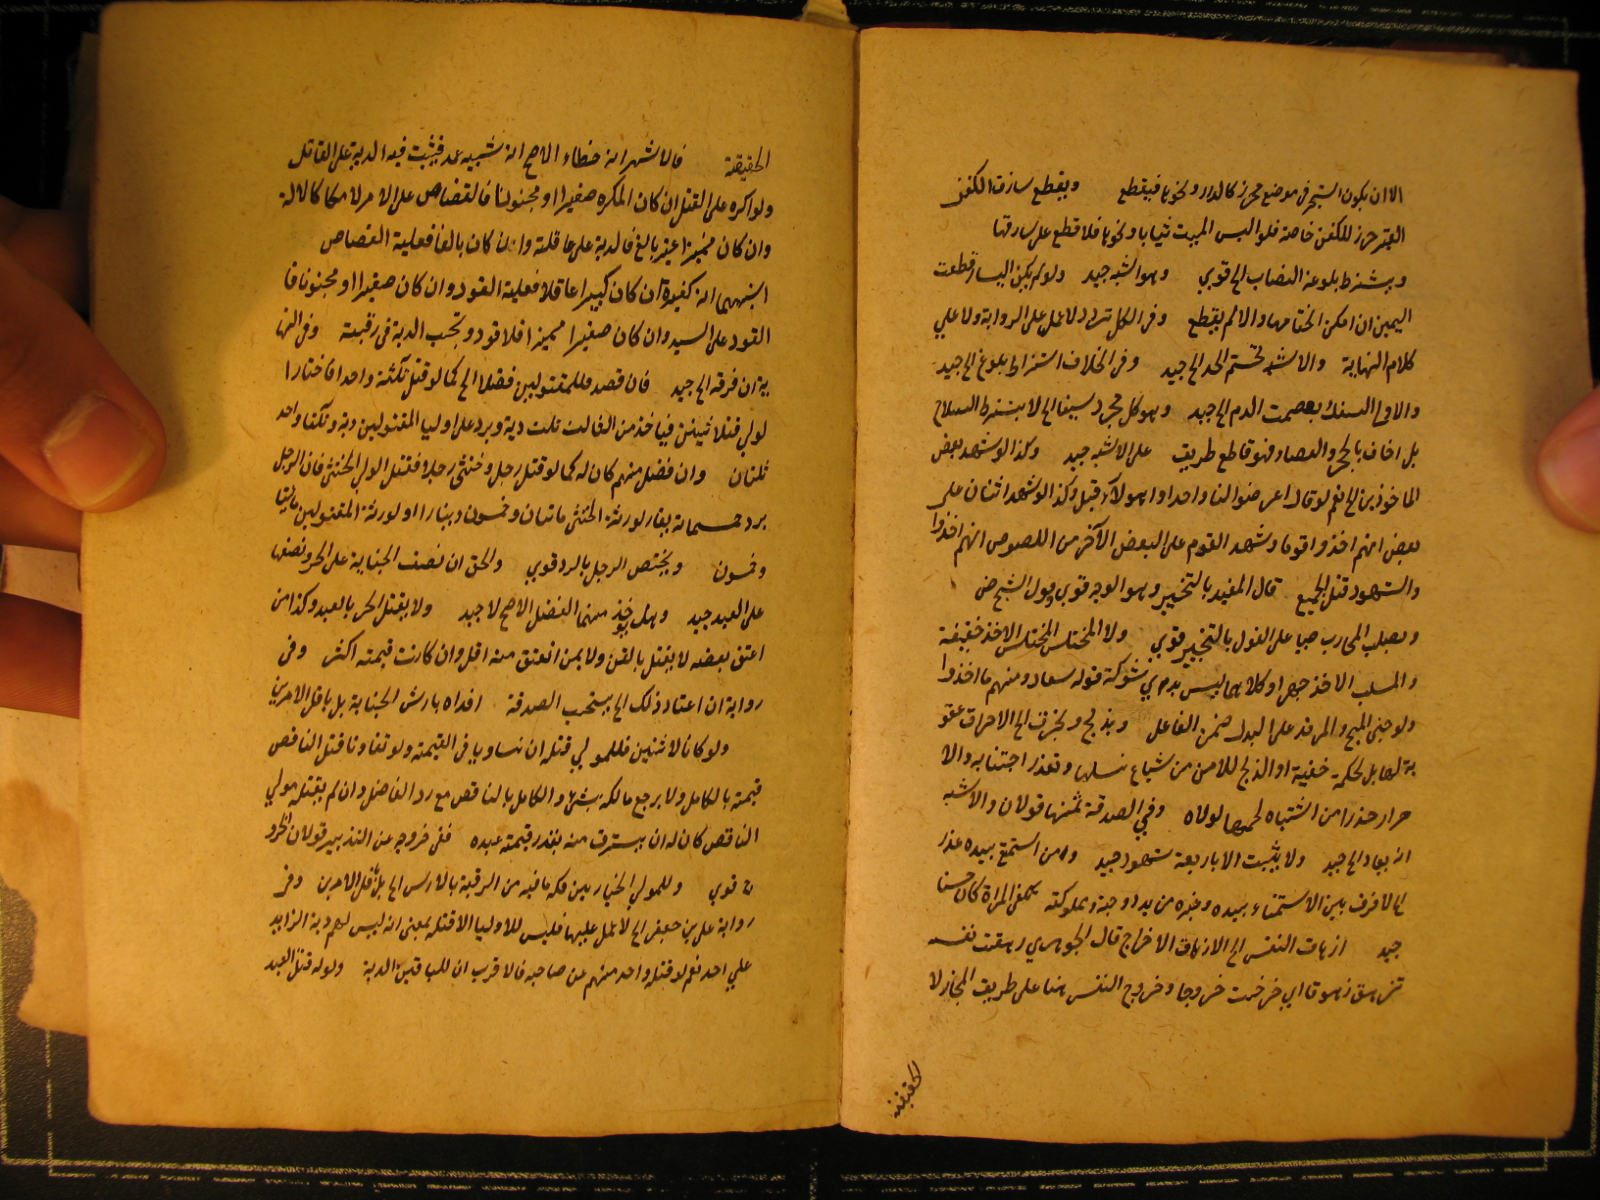 الا ان يكون الشجر في موضع محرز كالدار ونحوها فيقطع ويقطع سارق الكفن
القبر حرز للكفن خاصة فلو البس الميت ثيابا ونحوها فلا قطع على سارقها
ويشترط بلوغه النصاب الى قوي وهو اشبه جيد ولو لم يكن اليسار قطعت
اليمين ان امكن وفي الكل تردد لا عمل على الرواية ولا على
كلام النهاية والاشبه تحتم الحد الى جيد وفي الخلاف اشتراط بلوغ الى جيد
بعصمت الدم الى جيد وهو كل مجرد سيفا الى لا يشترط السلاح
بل اخاف بالحجر والعصا فهو قاطع طريق على الاشبه جيد وكذا لو شهد بعض
الماخوذين الى نعم لو قال اعرضوا لنا واخذوا هولاء قبل وكذا لو شهد اثنان على
بعض انهم اخذوا قوما وشهد القوم على البعض الآخر من اللصوص انهم اخذوا
والشهود قتل الجميع قال المفيد بالتخيير وهو الوجه قوي وقول الشيخ ض
ويصلب المحارب حيا على القول بالتخيير قوي ولا المختلس المختلس الاخذ خفيفة
والمسلب الاخذ جهرا وكلاهما ليس بذي شوكة قوله سعاد ومنهم ما اخذوا
ولو جنى المبنج والمرقد على البدل ضمن الفاعل ويذبح ويحرق الى الاحراق عقو
بة لها بل لحكمة خفية او الذبح للامن من شياع نسلها وتعذر اجتنابه والا
حرار حذرا من اشتباه لحمها لولاه وفي الصدقة بثمنها قولان والاشبه
انه يعاد الى جيد ولا يثبت الا باربعة شهود جيد ومن استمنى بيده عذر
الى لا فرق بين الاستمناء بيده وغيره من يد زوجته ومملوكته
جيد ازهاق النفس الى الازهاق الاخراج قال الجوهري زهقت نفسه
تزهق زهوقا اي خرجت خروجا وخروج النفس هنا على طريق المجاز لا
الحقيقة
الحقيقة فالاشهر انه خطاء الاصح انه شبيه عمد فيثبت فيه الدية على القاتل
ولو اكره على القتل ان كان المكره صغيرا او مجنونا فالقصاص على الامر لانهما كالالة
وان كان مميزا غير بالغ فالدية على عاقلة وان كان بالغا فعليه القصاص
اشبههما انه كغيره ان كان كبيرا عاقلا فعليه القود وان كان صغيرا او مجنونا فا
القود على السيد وان كان صغيرا مميزا فلا قود وتجب الدية في رقبته وفي النها
ية ان فرقه الى جيد فان قصد وللمقتولين فضل الى كما لو قتل ثلثة واحدا فاختار ا
لولي قتل اثنين فياخذ من الثالث ثلث دية ويرد على اوليا المقتولين دية وثلثا واحد
ثلثان وان فضل منهم كان له كما لو قتل رجل وخنثى رجلا فقتل الولي الخنثى فان الرجل
يرد خمسماية دينار لورثة الخنثى ماتان وخمسون دينارا او لورثة المقتولين مايتا
وخمسون ويختص الرجل بالرد قوي والحق ان نصف الجناية على الحر ونصفها
على العبد جيد وهل يوخذ منهما الفضل الاصح لا جيد ولا يقتل الحر بالعبد وكذا من
اعتق بعضه لا يقتل بالقن ولا بمن انعتق منه اقل وان كانت قيمته اكثر وفي
رواية ان اعتاد ذلك الى يستحب الصدقة افداه بارش الجناية بل باقل الامرين
ولو كانا لاثنين فللمولي قتله ان تساويا في القيمة ولو تفاوتا قتل الناقص
قيمته بالكامل ولا يرجع مالكه بشيء والكامل بالناقص مع رد الفاضل وان لم يقتله مولي
الناقص كان له ان يسترق منه بقدر قيمة عبده ففي خروجه عن التدبير قولان الخرو
ج قوي وللمولي الخيار بين فكه مافيه من الرقبة بالارش الى بل باقل الامرين وفي
رواية على بن جعفر الى لا عمل عليها فليس للاوليا الا قتله بمعنى انه ليس لهم دية الزايد
علي احد نعم لو قتله واحد منهم عن صاحبه فالاقرب ان للباقين الدية ولو له قتل العبد